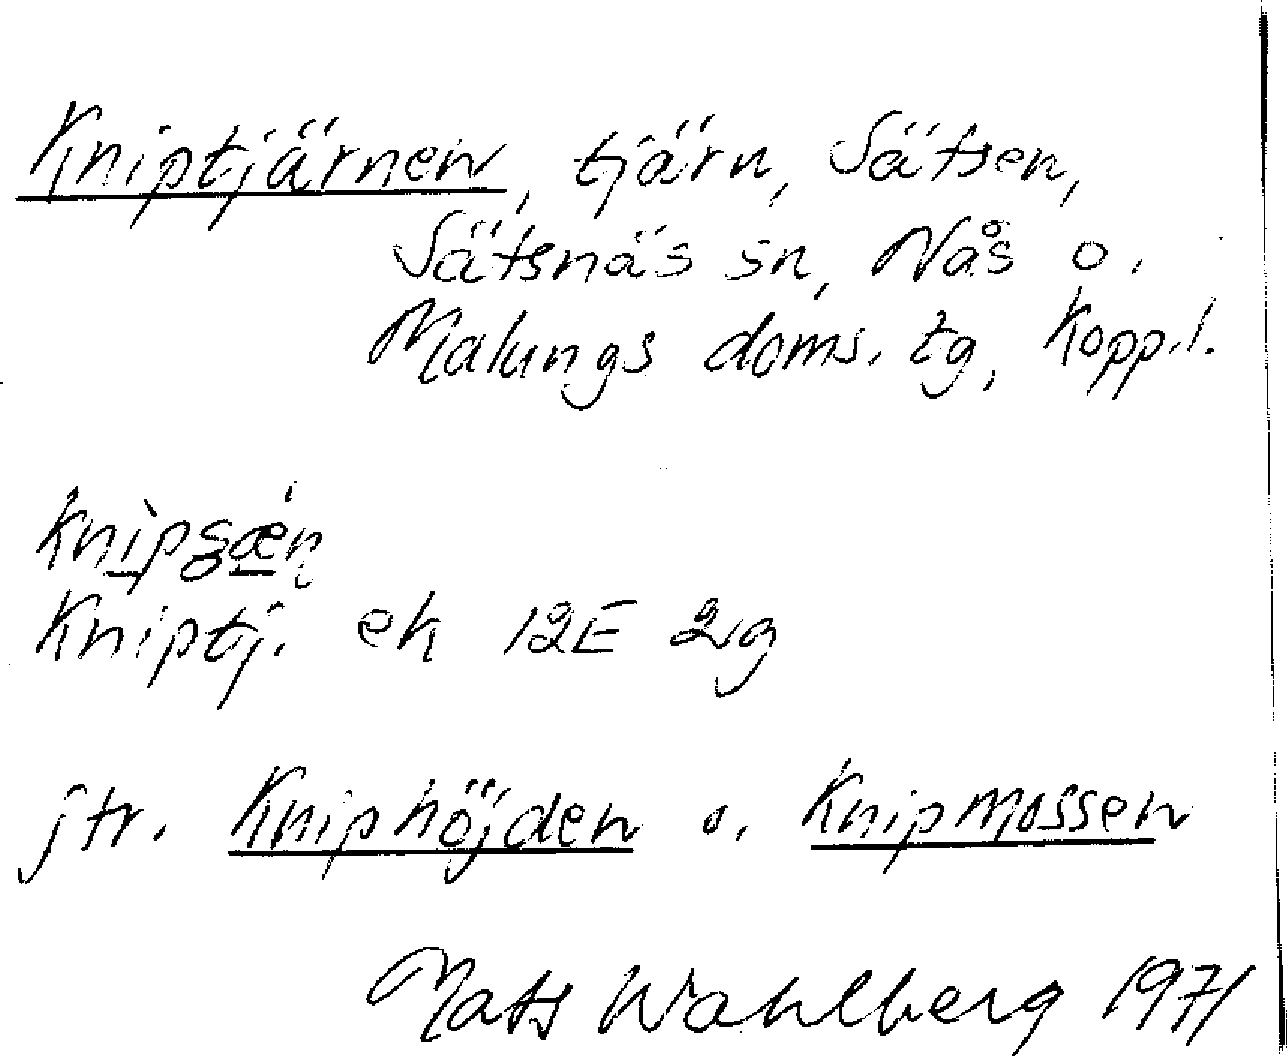 Kniptjärnen, tjärn, Sätsen,
Sätsnäs sn, Nås o.
Malungs doms. tg, Kopp.l.
Kniptj. ek 12E 2g
jfr. Kniphöjden o. Knipmossen
Mats Wahlberg 1971